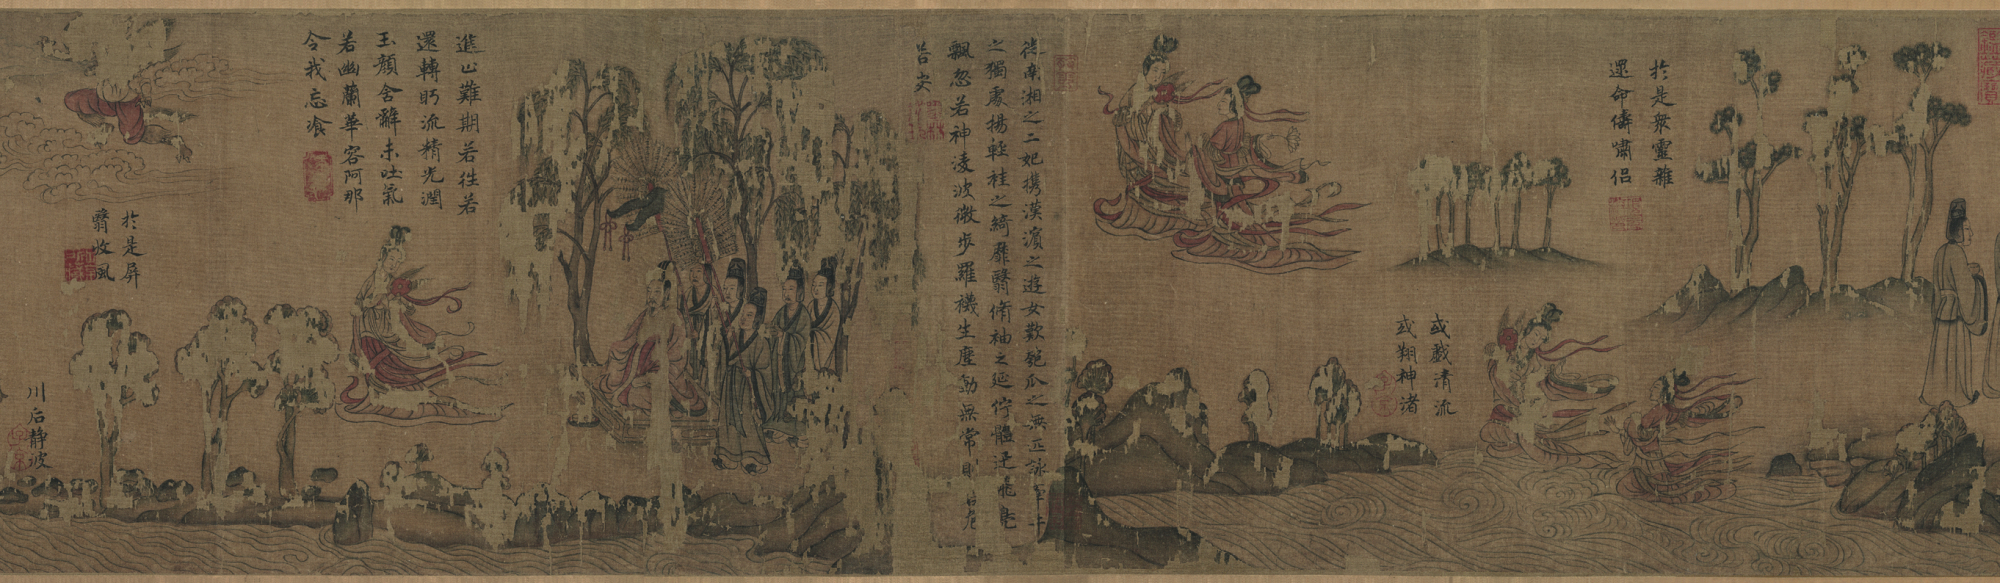 於是衆靈雜
還命儔嘯侶
或戲清流
或翔神渚
從南湘之二妃攜漢濱之遊女歎匏瓜之無匹詠牽牛
之獨處揚輕袿之綺靡翳脩袖之延佇體迅飛鳧
飄忽若神淩波微步羅襪生塵動無常則若危
若安
進止難期若往若
還轉眄流精光潤
玉顏含辭未吐氣
若幽蘭華容阿那
令我忘飡
於是屏
翳收風
川后靜波